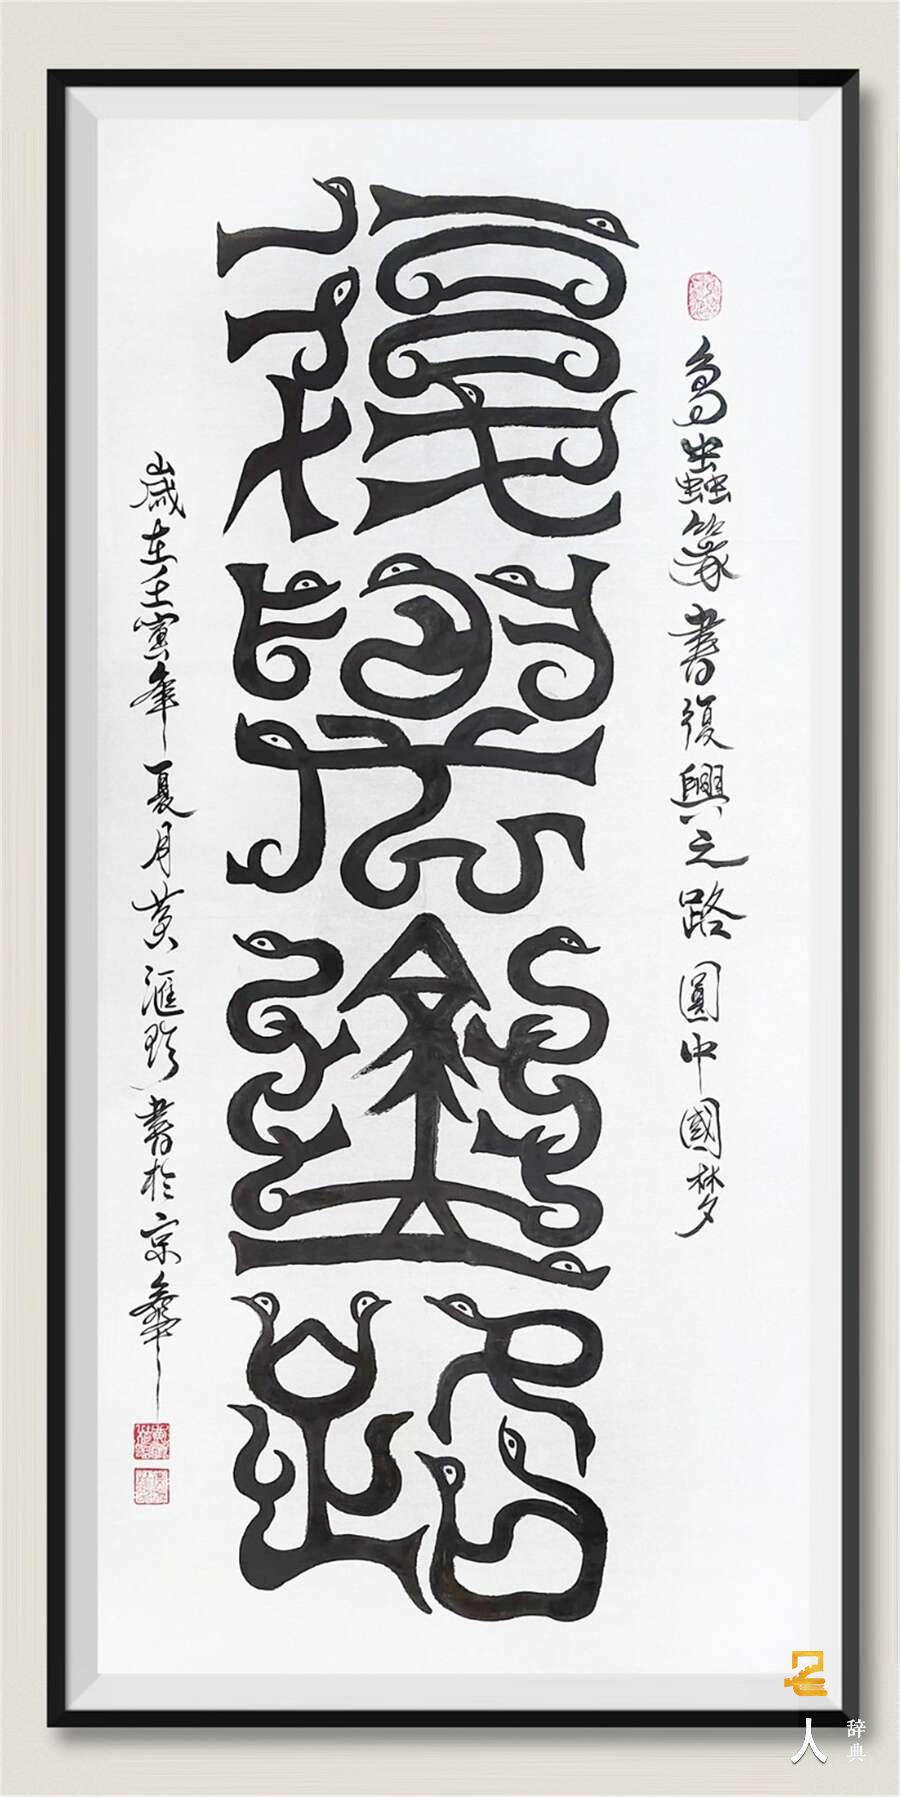 鳥蟲篆書復興之路圓中國夢
復興之路
歲在壬寅年夏月黃滙珍書於京華
名人辞典